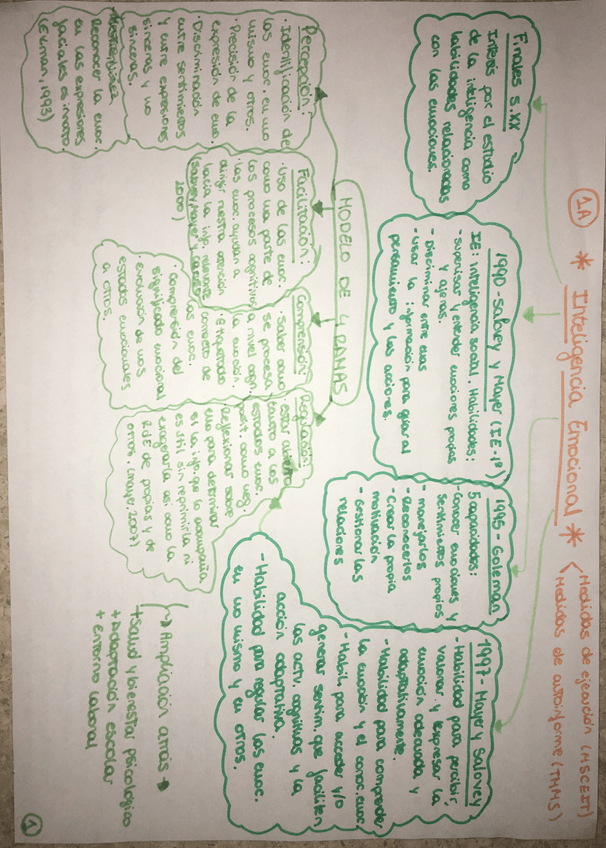 1A * Inteligencia Emocional *
Medidas de ejecución (MSCEIT)
Medidas de autoinforme (TMMS)
Finales S.XX
Interés por el estudio
de la inteligencia como
habilidades relacionadas
con las emociones.
1990 - Salovey y Mayer (IE - 1ª)
IE: inteligencia social. Habilidades:
- Supervisar y entender emociones propias
y ajenas.
- Discriminar entre ellas
- Usar la información para guiar al
pensamiento y las acciones.
1995 - Goleman
5 capacidades:
- Conocer emociones y
sentimientos propios
- manejarlos
- Reconocerlos
- Crear la propia
motivación
- Gestionar las
relaciones
1997 - Mayer y Salovey
- Habilidad para percibir,
valorar y expresar la
emoción adecuada y
adaptativamente.
- Habilidad para comprender
la emoción y el conoc. emoc.
- Habil. para acceder y/o
generar sentim. que faciliten
las activ. cognitivas y la
acción adaptativa.
- Habilidad para regular las emoc.
en uno mismo y en otros.
MODELO DE 4 RAMAS
Percepción:
· Identificación de
las emoc. en uno
mismo y otros.
· Precisión de la
expresión de emo.
· Discriminación
entre sentimientos
y entre expresiones
sinceras y no
sinceras.
Reconocer la emoc.
en las expresiones
faciales es innato.
(Ekman, 1993)
Facilitación:
· Uso de las emoc.
como una parte de
los procesos cognitivos
· Las emoc. ayudan a
dirigir nuestra atención
hacia la info. relevante
(Salovey, Mayer y Caruso
2000)
Comprensión:
· Saber cómo
se procesa
a nivel cogn
la emoción.
· Etiquetado
correcto de
las emoc.
· Comprensión del
significado emocional
· evolución de unos
estados emocionales
a otros.
Regulación:
estar abierto
tanto a los
estados emoc.
posit. como neg.
Reflexionar sobre
ello para determinar
si la info que lo acompaña
es útil sin reprimirla ni
exagerarla así como la
R de E de propias y de
otros. (Mayer, 2007)
Ampliación atrás →
+ Salud y bienestar psicológico
+ Adaptación escolar
+ entorno laboral
1